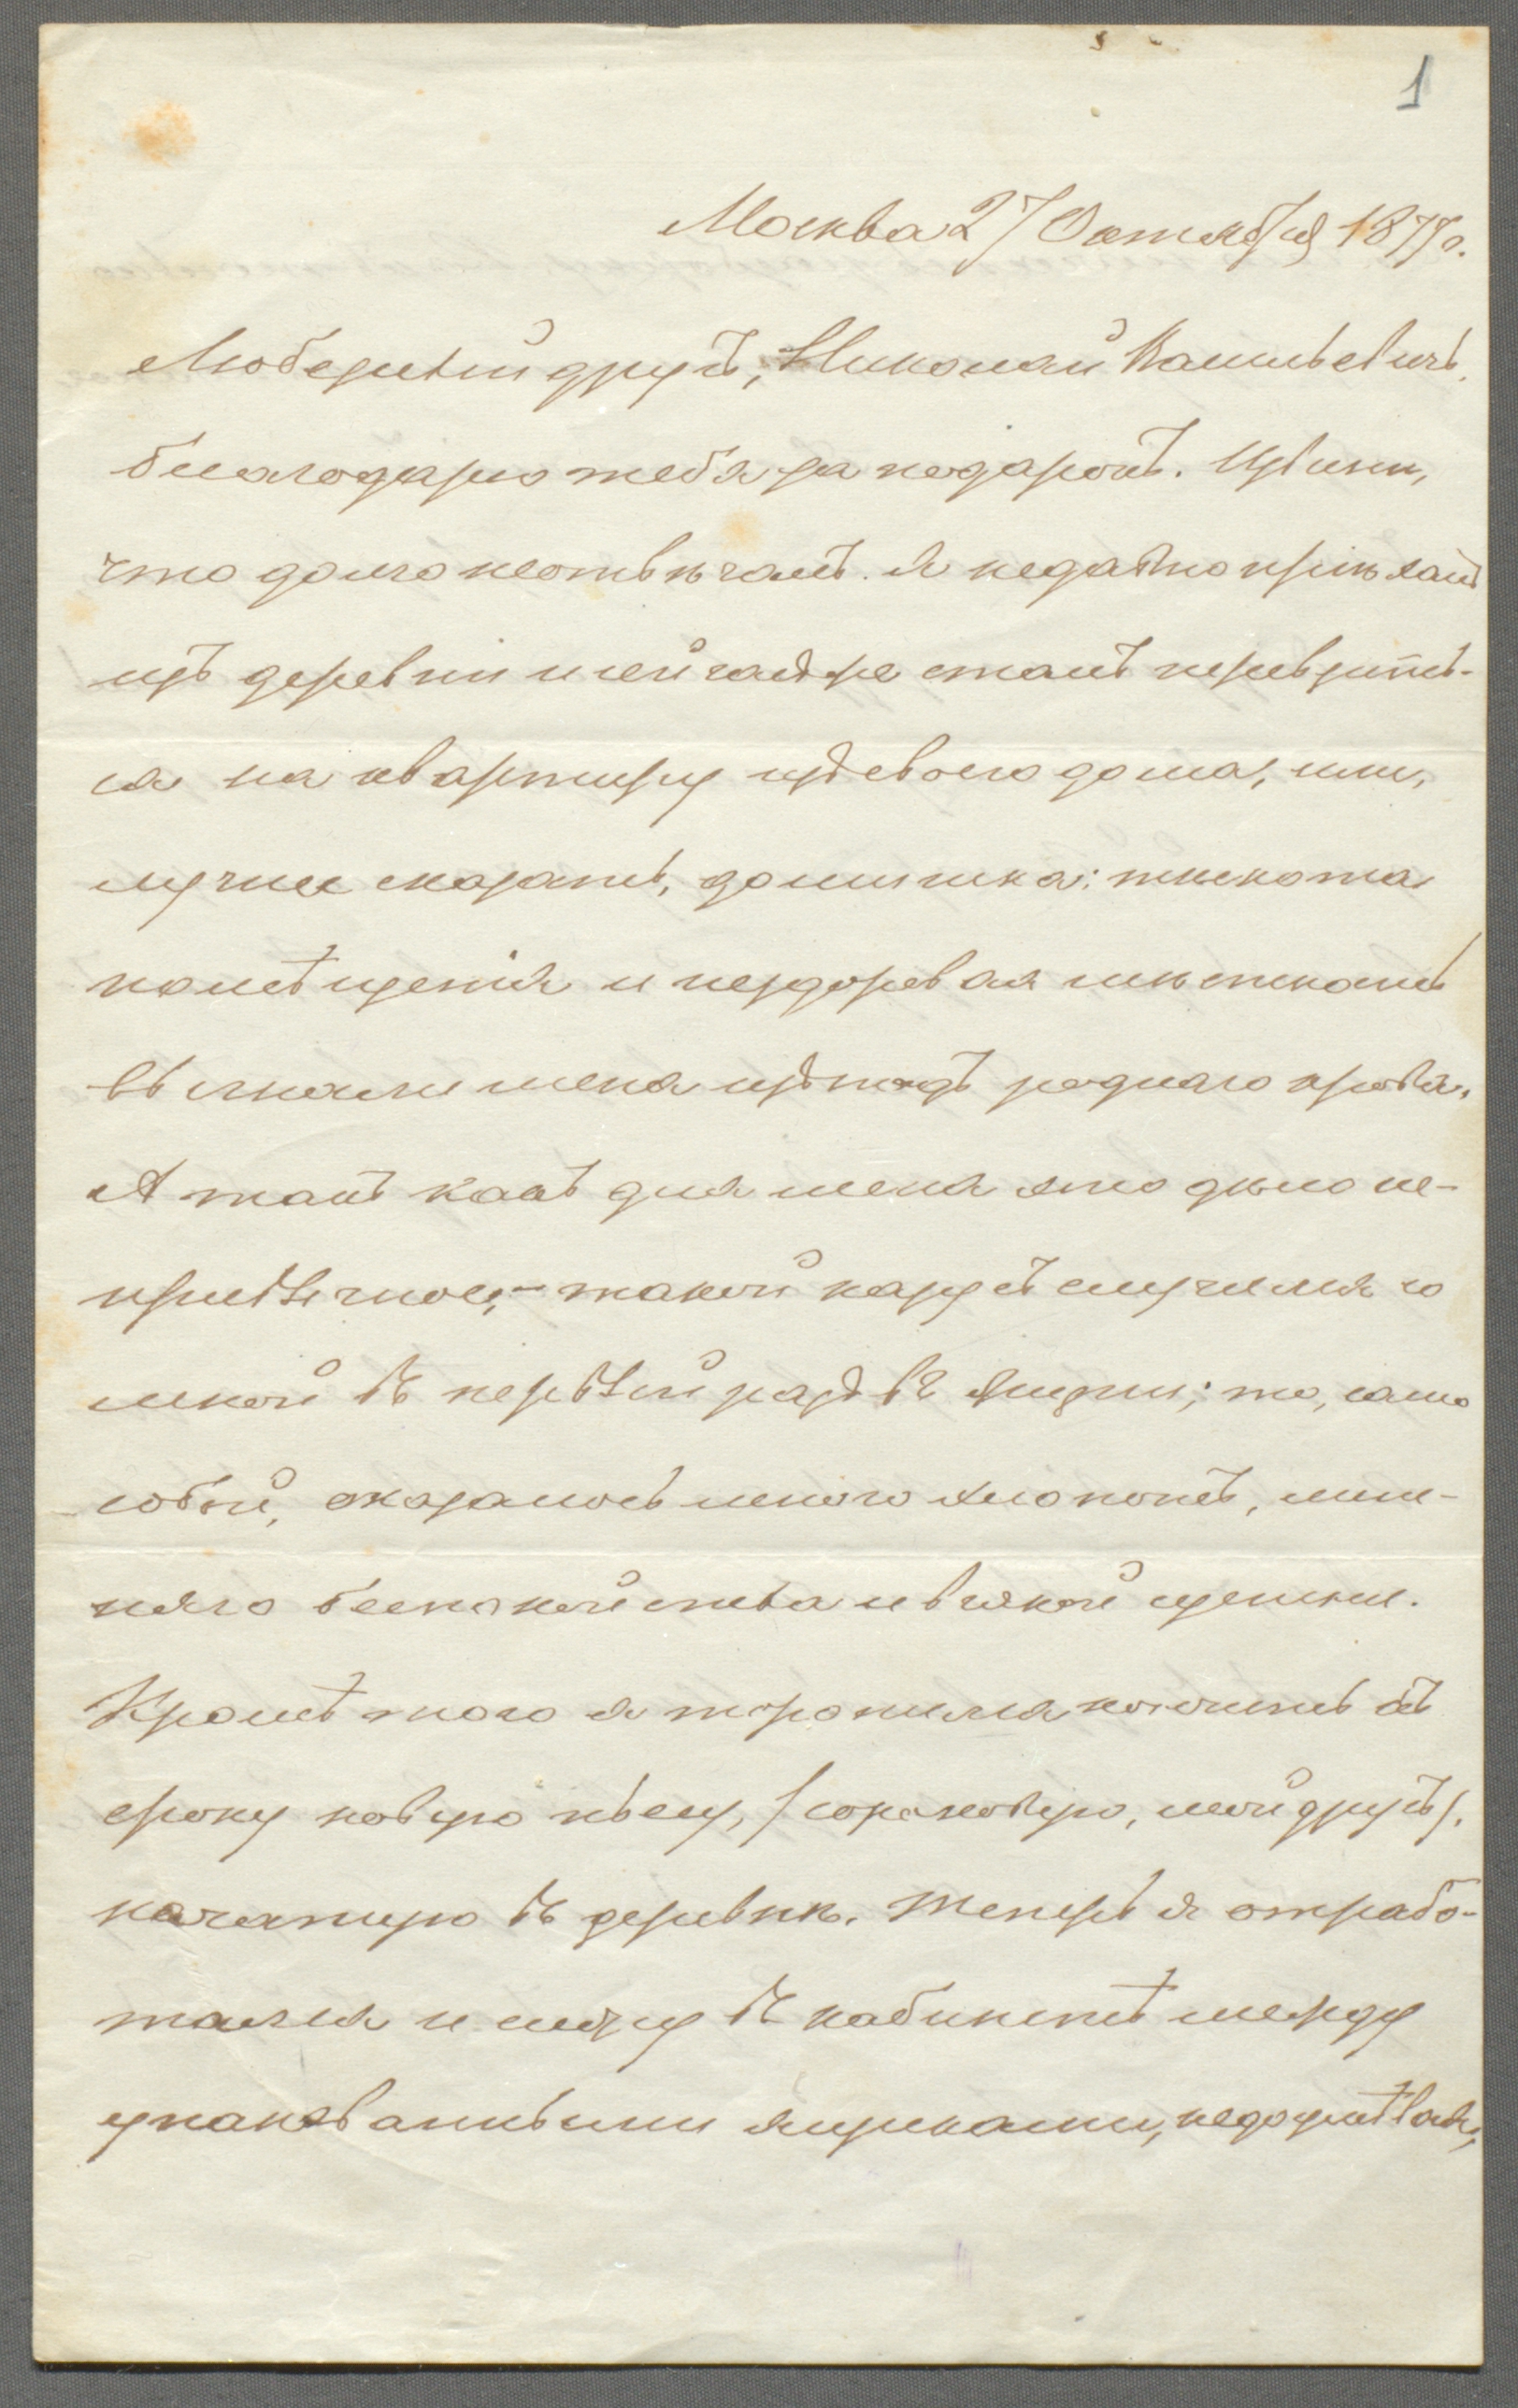 1
Москва 27 Октября 1877 г.
Любезный другъ, Николай Васильевичъ,
благодарю тебя за подарокъ. Извини,
что долго не отвѣчалъ. Я недавно пріѣхалъ
изъ деревни и сейчасъ же сталъ перевозить-
ся на квартиру изъ своего дома, или,
лучше сказать, домишка: тѣснота
помѣщенія и нездоровая мѣстность
выгнали меня изъ подъ роднаго крова.
А такъ какъ для меня это дѣло не-
привычное, – такой казусъ случился со
мной въ первый разъ въ жизни; то, само
собой, оказалось много хлопотъ, лиш-
няго безпокойства и всякой щепки.
Кромѣ того я торопился кончить къ
сроку новую пьесу, (сороковую, мой другъ),
начатую въ деревнѣ. Теперь я отрабо-
тался и сижу въ кабинетѣ между
упакованными ящиками, недоумѣвая,